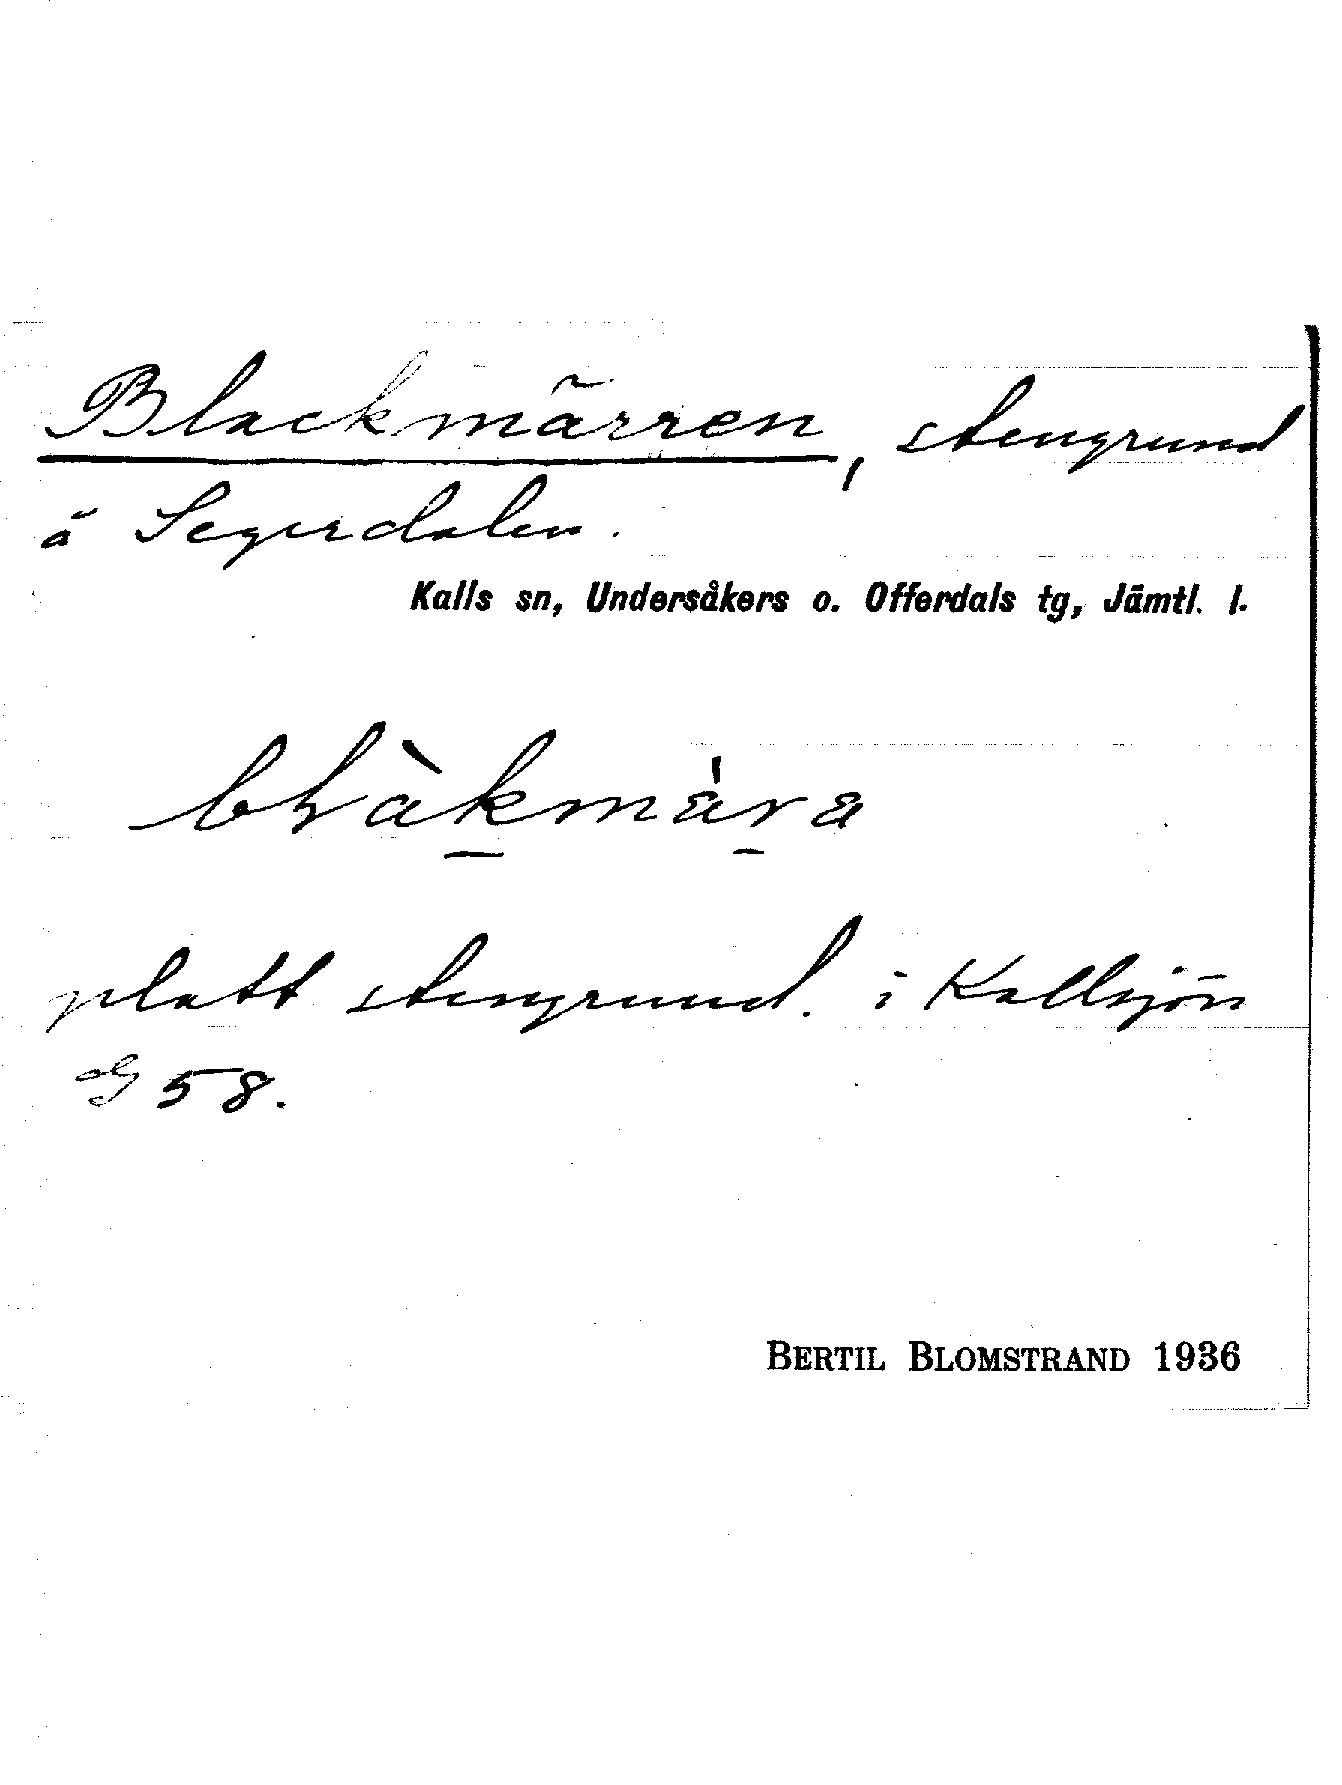 Blackmärren, stengrund
å Segerdalen.
Kalls sn, Undersåkers o. Offerdals tg, Jämtl. l.
platt stengrund. i Kallsjön
58.
BERTIL BLOMSTRAND 1936